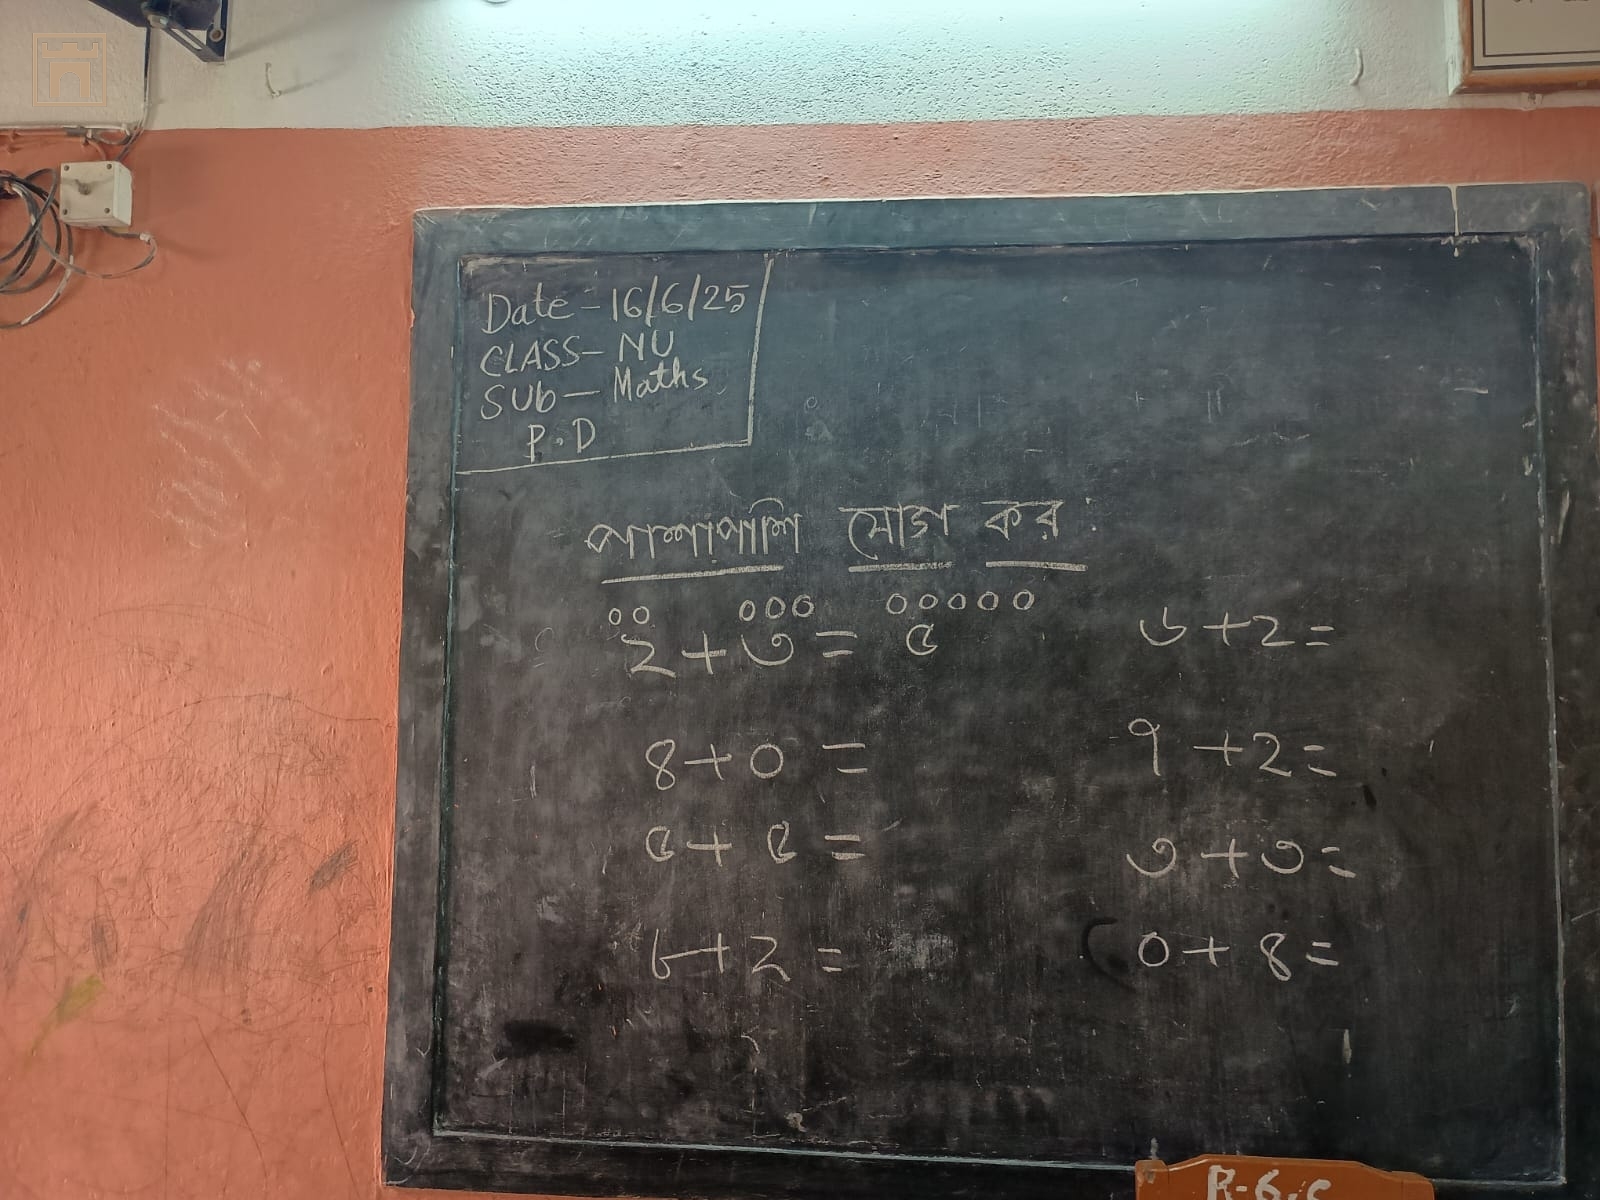 Date - 16/6/25
CLASS - NU
SUb - Maths
P.D
পাশাপাশি যোগ কর :
২ + ৩ = ৫
৬ + ২ =
৪ + ০ =
৭ + ২ =
৫ + ৫ =
৩ + ৩ =
৮ + ২ =
০ + ৪ =
R-6.C